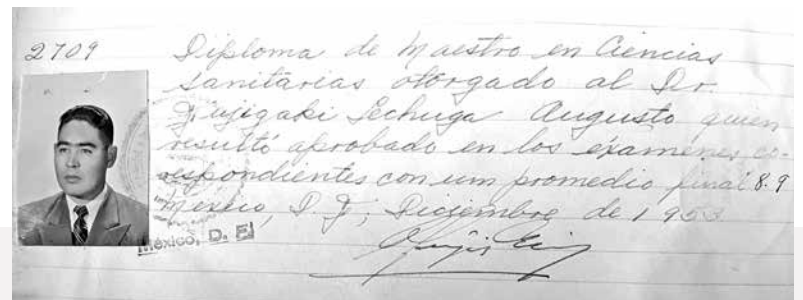 2709
Diploma de Maestro en Ciencias
Sanitarias otorgado al Dr.
Fujigaki Lechuga Augusto quien
resultó aprobado en los exámenes co-
rrespondientes con um promedio final 8.9
México, D. F; Diciembre de 1953
México, D. F.